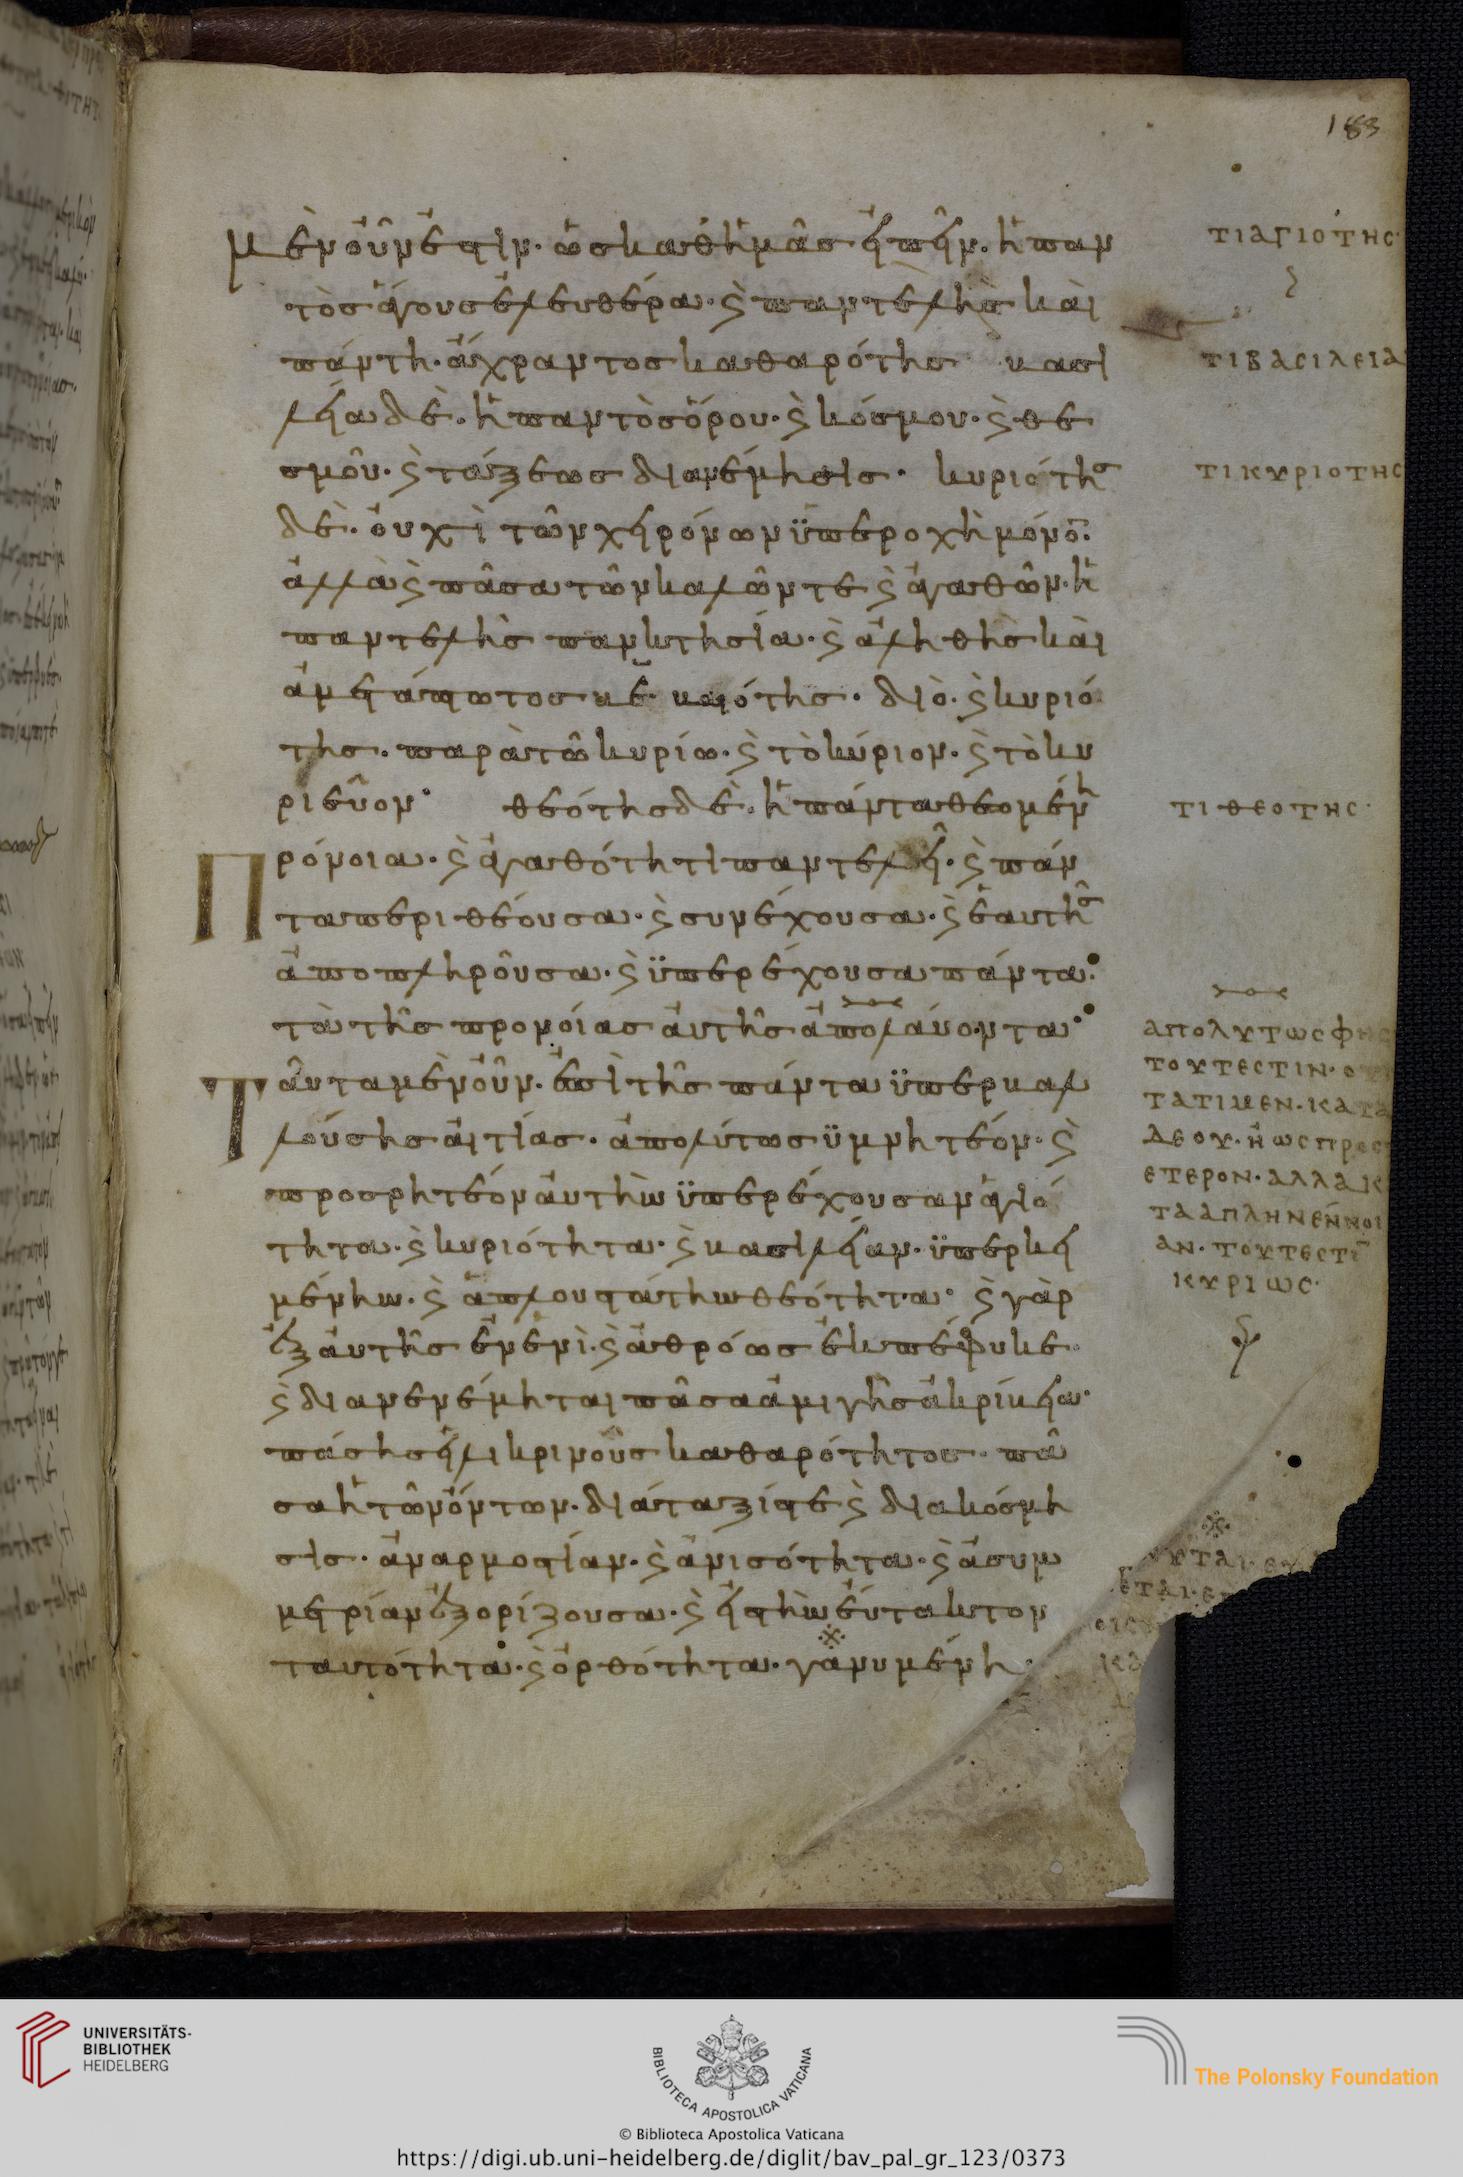 183
μὲν οὖν ἐστιν· ὡς καθ ἡμᾶς εἰπεῖν. ἡ παν
τὸς ἄγους ἐλευθέρα· ϗ παντελὴς καὶ
πάντη· ἄχραντος καθαρότης βασι
λεία δὲ. ἡ παντὸς ὅρου· ϗ κόσμου· ϗ θε
σμοῦ· ϗ τάξεως διανέμησις· κυριότης
δὲ. οὐχὶ τῶν χειρόνων ὑπεροχὴ μόνον·
ἀλλὰ ϗ πᾶσα τῶν καλῶν τε ϗ ἀγαθῶν· ἡ
παντελὴς παγκτησία· ϗ ἀληθὴς καὶ
ἀμετάπτωτος βεβαιότης· διὸ. ϗ κυριό
της. παρὰ τὸ κυρίω· ϗ τὸ κύριον· ϗ τὸ κυ
ριεῦον· θεότης δὲ. ἡ πάντα θεομένη
Πρόνοια. ϗ ἀγαθότητι παντελεῖ. ϗ πάν
τα περιθέουσα. ϗ συνέχουσα. ϗ ἑαυτῆς
ἀποπληροῦσα. ϗ ὑπερέχουσα πάντα
τὰ τῆς προνοίας αὐτῆς ἀπολαύοντα·
Ταῦτα μὲν οὖν. ἐπὶ τῆς πάντα ὑπερβαλ
λούσης αἰτίας. ἀπολύτως ὑμνητέον. ϗ
προσρητέον αὐτὴν ὑπερέχουσαν ἁγιό
τητα. ϗ κυριότητα. ϗ βασιλείαν. ὑπερκει
μένην. ϗ ἁπλουστάτην θεότητα· ϗ γὰρ
ἐξ αὐτῆς ἐν ἑνὶ. ϗ ἀθρόως ἐκπέφυκε
ϗ διανενέμηται πᾶσα ἀμιγὴς ἀκρίβεια·
πάσης εἰλικρινοῦς καθαρότητος. πᾶ
σα ἡ τῶν ὄντων. διάταξίς τε ϗ διακόσμη
σις. ἀναρμοστίαν. ϗ ἀνισότητα. ϗ ἀσυμ
μετρίαν ἐξορίζουσα. ϗ εἰς τὴν εὔτακτον
ταυτότητα. ϗ ὀρθότητα. γανυμένη.
ΤΙ ΑΓΙΟΤΗС
ΤΙ ΒΑСΙΛΕΙΑ
ΤΙ ΚΥΡΙΟΤΗС
ΤΙ ΘΕΟΤΗС
ΑΠΟΛΥΤΩС
ΤΟΥΤΕСΤΙΝ·
ΤΑΤΙ ΜΕΝ· ΚΑΤΑ
ΔΕ ΟΥ· Η ΩС
ΕΤΕΡΟΝ· ΑΛΛΑ
ΤΑ ΑΠΛΗΝ ΕΝΝΟΙ
ΑΝ· ΤΟΥΤΕСΤΙ
ΚΥΡΙΩС·
UNIVERSITÄTS-
BIBLIOTHEK
HEIDELBERG
BIBLIOTECA APOSTOLICA VATICANA
The Polonsky Foundation
© Biblioteca Apostolica Vaticana
https://digi.ub.uni-heidelberg.de/diglit/bav_pal_gr_123/0373